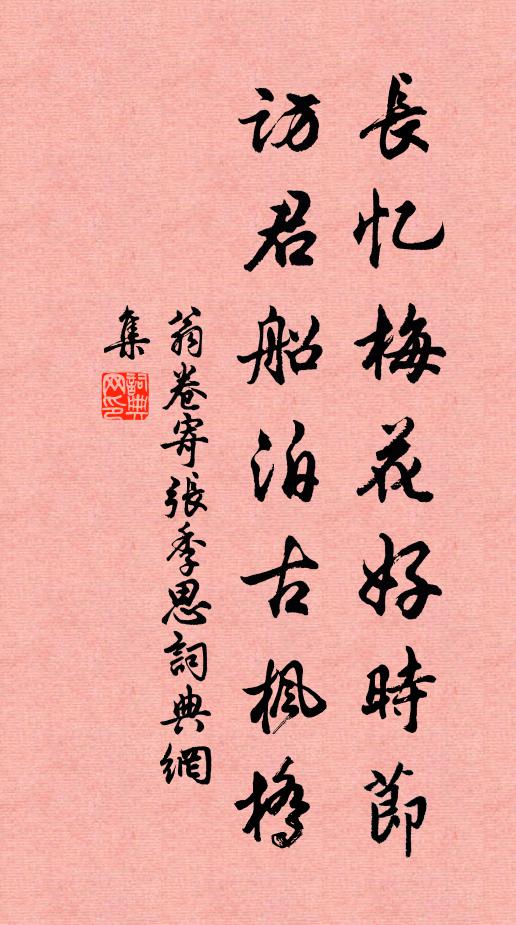 長忆梅花好時節
訪君船泊古楓橋
翁卷寄張季思詞典網
集
詞典網印